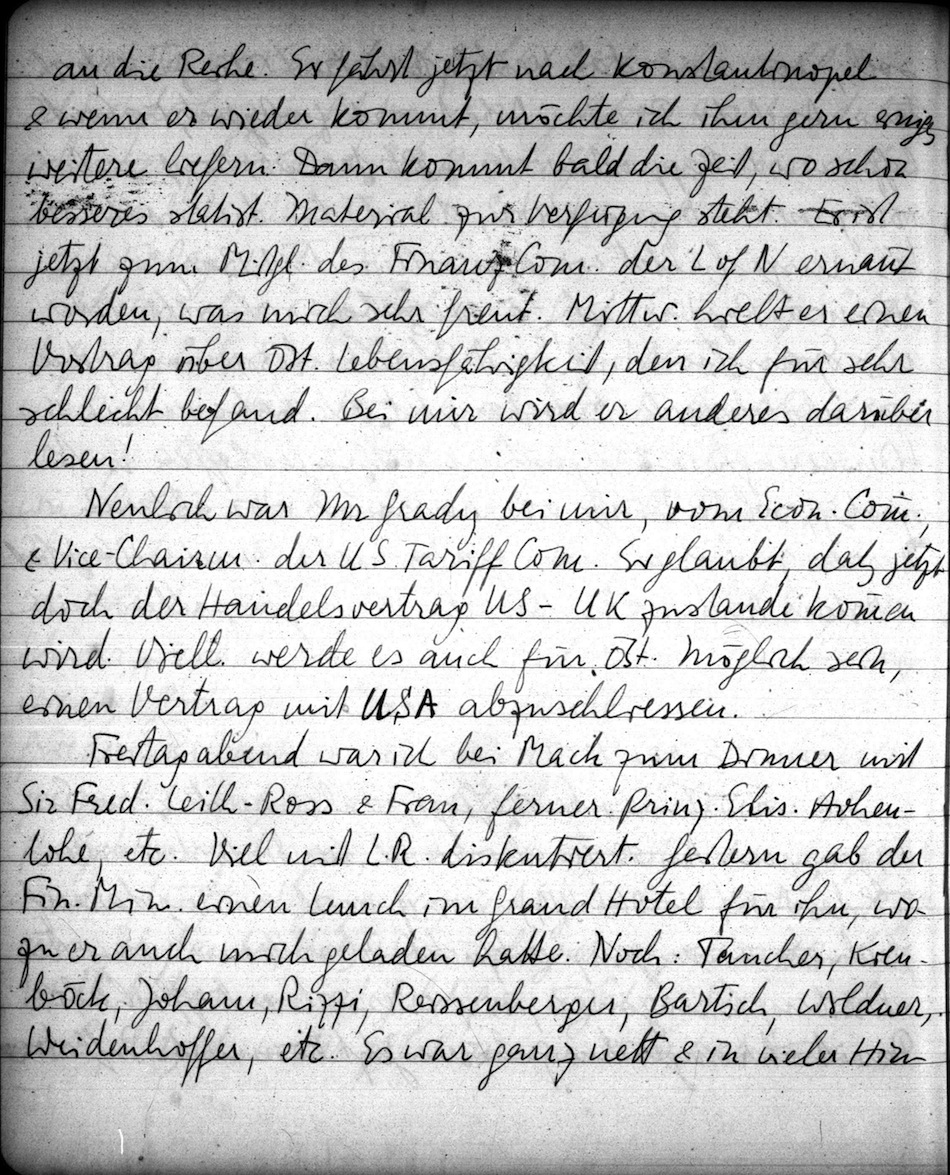 an die Reihe. Er fährt jetzt nach Konstantinopel
& wenn er wieder kommt, möchte ich ihm gern einiges
weitere liefern. Dann kommt bald die Zeit, wo schon
besseres statist. Material zur Verfügung steht. Er ist
jetzt zum Mitgl. des Finanz Com. der L of N ernannt
worden, was mich sehr freut. Mittw. hielt er einen
Vortrag über Öst. Lebensfähigkeit, den ich für sehr
schlecht befand. Bei mir wird er anderes darüber
lesen!
Neulich war Mr Grady bei mir, vom Econ. Com.,
& Vice-Chairm. der US Tariff Com. Er glaubt, daß jetzt
doch der Handelsvertrag US - UK zustande kom̅en
wird. Viell. werde es auch für Öst. möglich sein,
einen Vertrag mit USA abzuschliessen.
Freitagabend war ich bei Mack zum Dinner mit
Sir Fred. Leith-Ross & Frau, ferner Prinz. Elis. Hohen-
lohe, etc. Viel mit L.R. diskutiert. Gestern gab der
Fin. Min. einen Lunch im Grand Hotel für ihn, wo-
zu er auch mich geladen hatte. Noch: Taucher, Kien-
böck, Joham, Rizzi, Reissenberger, Bartsch, Wildner,
Weidenhoffer, etc. Es war ganz nett & in vieler Hin-